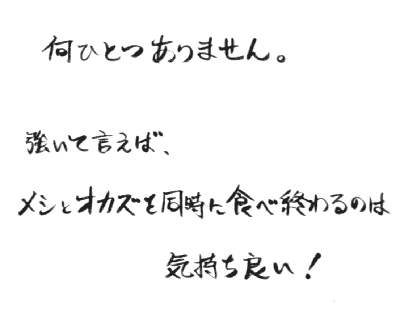 何ひとつありません。
強いて言えば、
メシとオカズを同時に食べ終わるのは
気持ち良い!